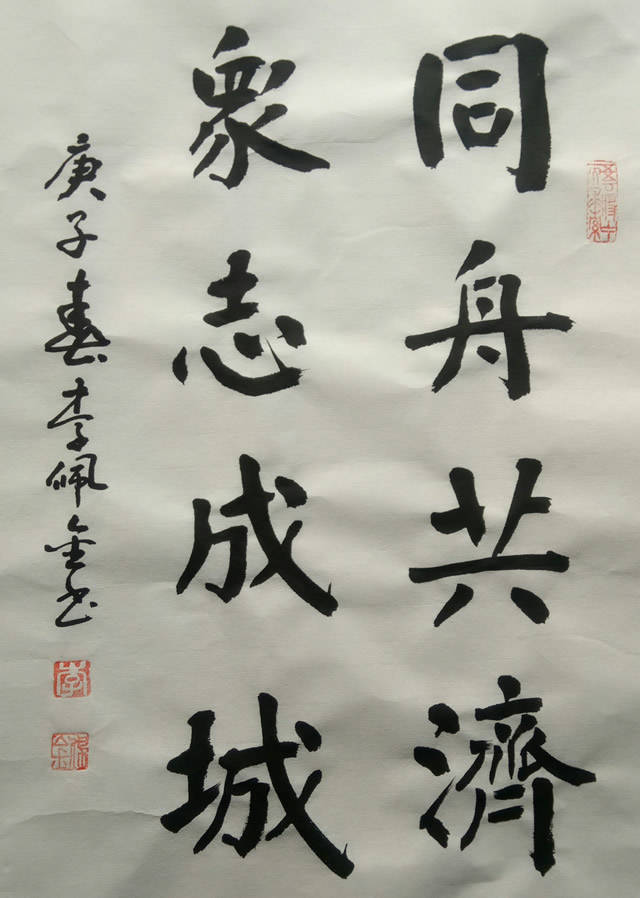 同舟共濟
衆志成城
庚子春李佩金书